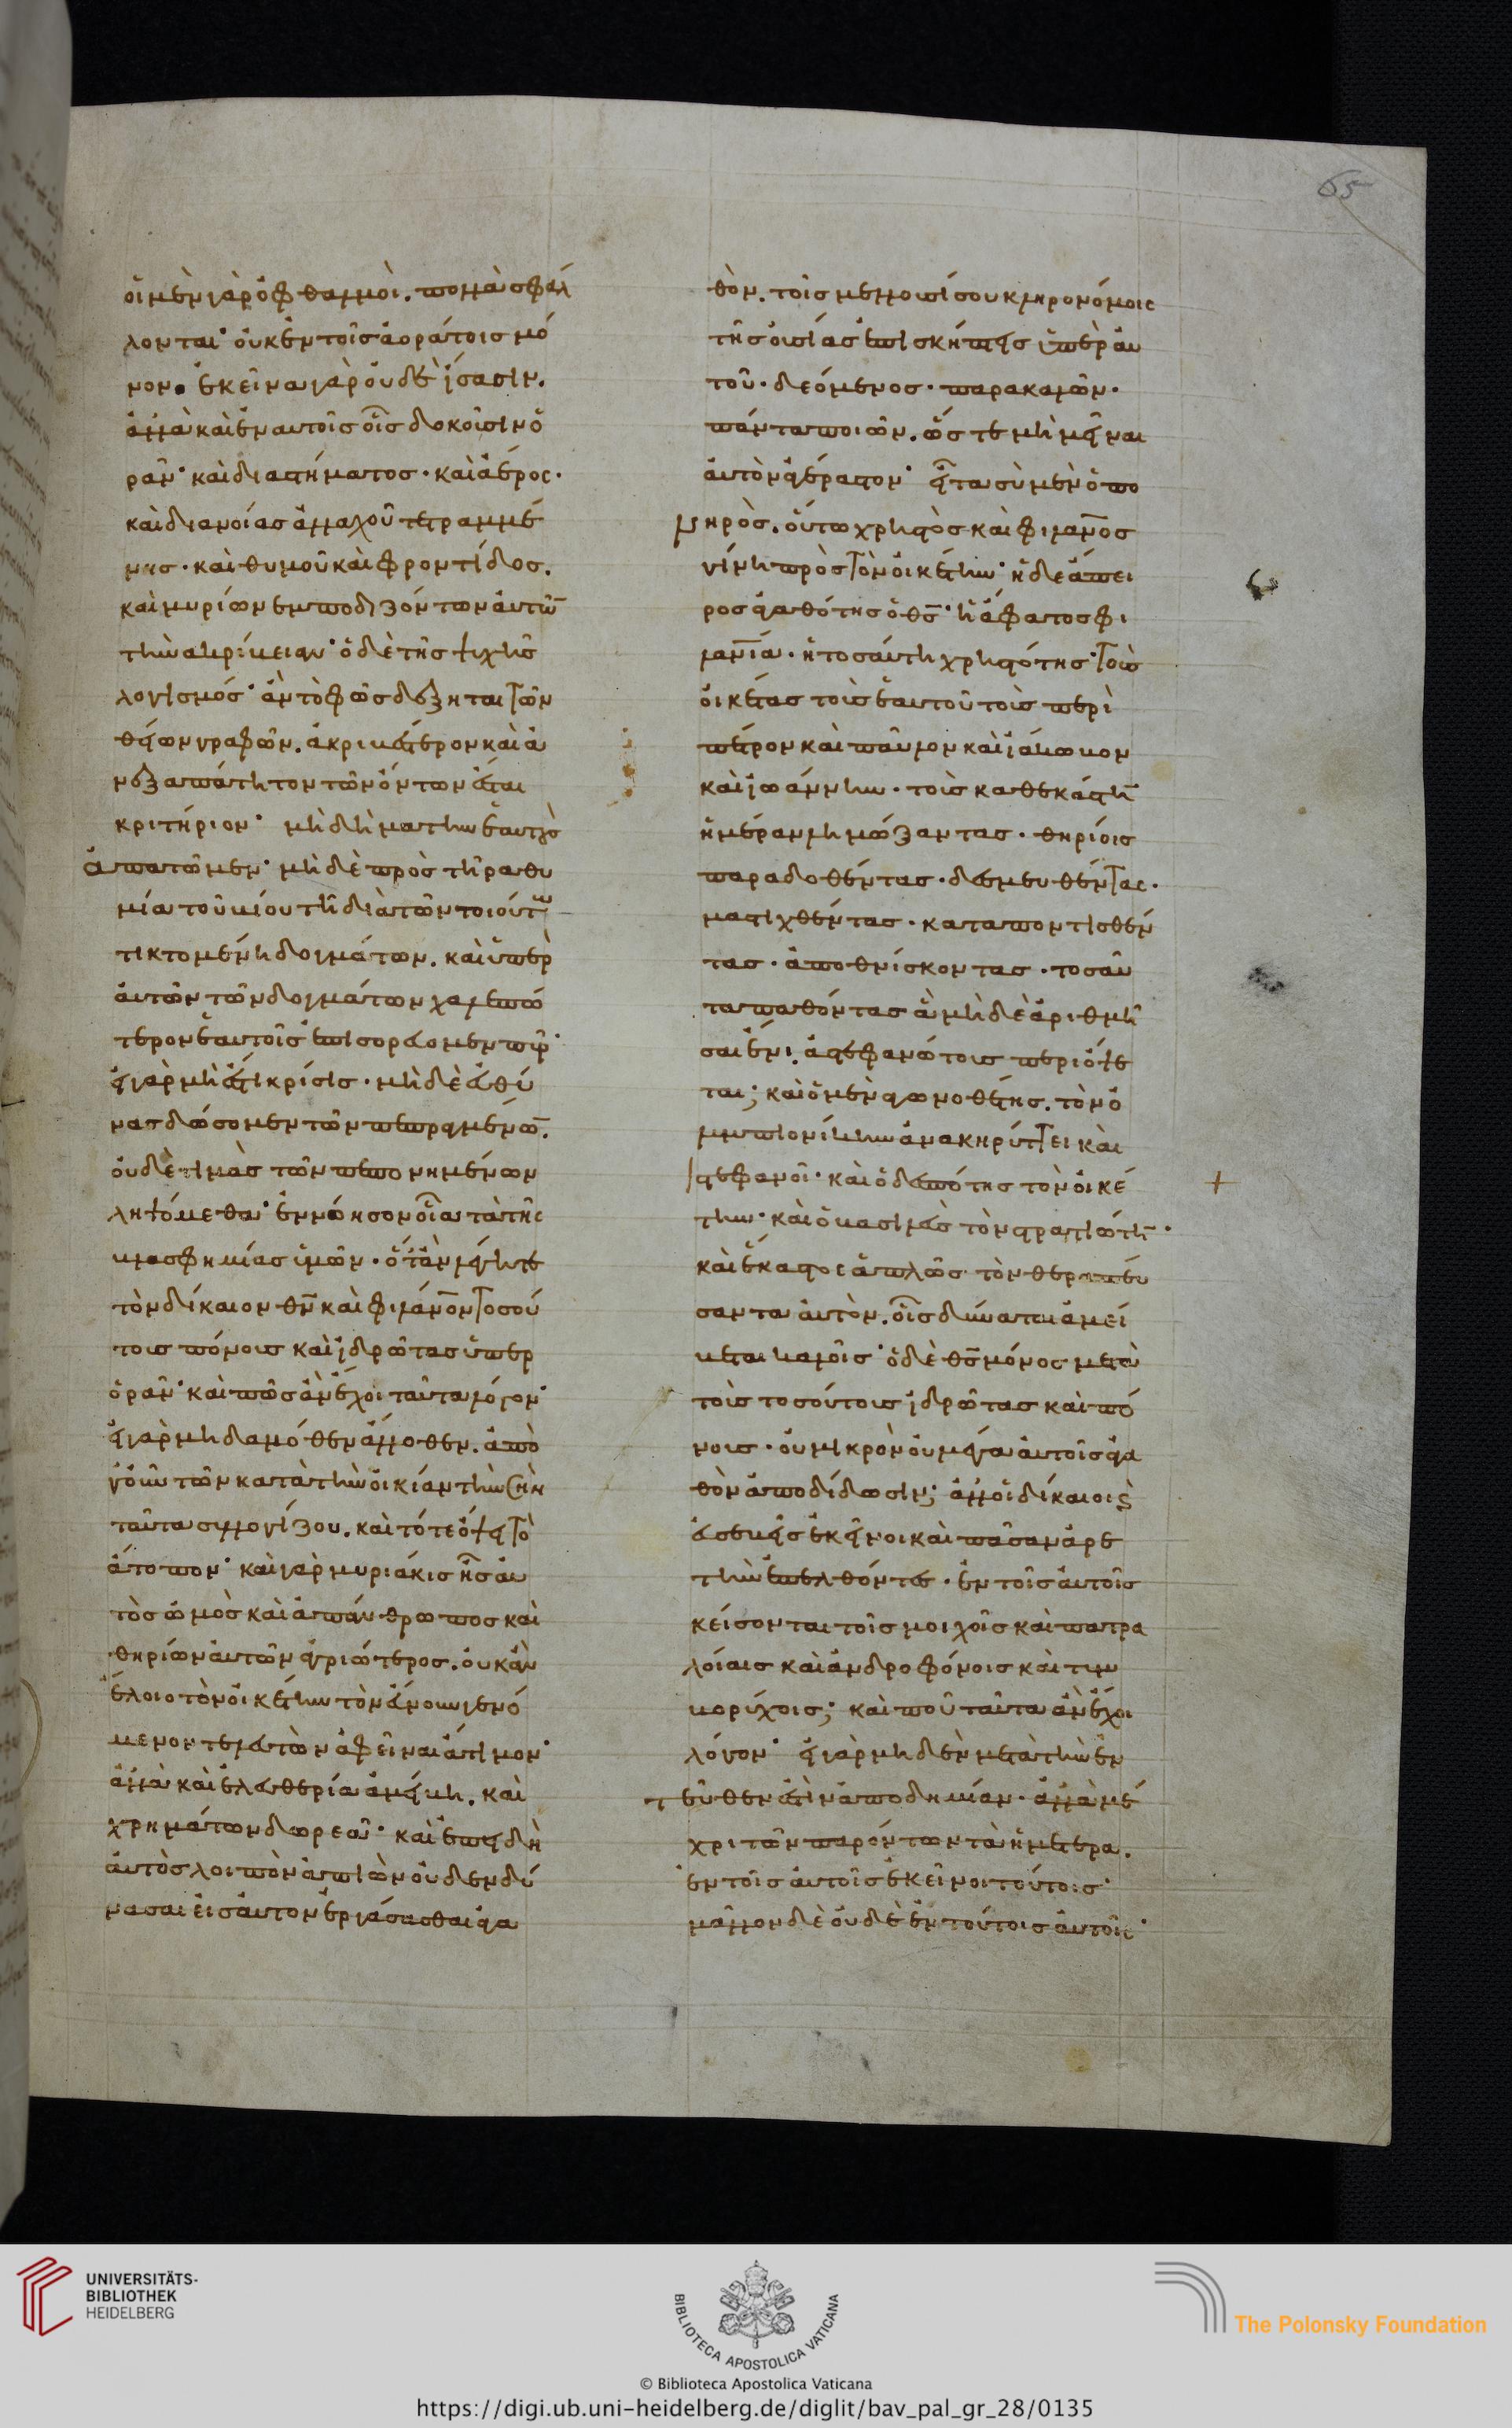 οἱ μὲν γὰρ ὀφθαλμοὶ. πολλὰ σφάλ
λονται· οὐκ ἐν τοῖς ἀοράτοις μό
νον. ἐκεῖνα γὰρ οὐδὲ ἴσασιν.
ἀλλὰ καὶ ἐν αὐτοῖς οἷς δοκοῦσιν ὁ
ρᾶν· καὶ διαστήματος. καὶ ἀέρος.
καὶ διανοίας ἀλλαχοῦ τετραμμέ
νης. καὶ θυμοῦ καὶ φροντίδος.
καὶ μυρίων ἐμποδιζόντων αὐτῶ̅
τὴν ἀκρίβειαν· ὁ δὲ τῆς ψυχῆς
λογισμός· ἂν τὸ φῶς δέξηται τῶν
θείων γραφῶν. ἀκριβέστερον καὶ ἀ
νεξαπάτητον τῶν ὄντων ἔσται
κριτήριον· μὴ δὴ μάτην ἑαυτοὺς
ἀπατῶμεν· μὴ δὲ πρὸς τῆ ῥαθυ
μία τοῦ βίου τῆ διὰ τῶν τοιούτων
τικτομένη δογμάτων. καὶ ὑπὲρ
αὐτῶν τῶν δογμάτων χαλεπώ
τερον ἑαυτοῖς ἐπισορεύσομεν πῦρ·
εἰ γὰρ μὴ ἔστι κρίσις. μὴ δὲ εὐθύ
νας δώσομεν τῶν πεπραγμένω̅.
οὐδὲ τιμὰς τῶν πεπονημένων
ληψόμεθα· ἐννόησον οἷα τὰ τῆς
βλασφημίας ὑμῶν. ὅταν λέγητε
τὸν δίκαιον θν̅ καὶ φιλάν̅ον τοσού
τους πόνους καὶ ἱδρῶτας ὑπερ
ὁρᾶν· καὶ πῶς ἂν ἔχοι ταῦτα λόγον·
εἰ γὰρ μηδαμόθεν ἄλλοθεν. ἀπὸ
γοῦν τῶν κατὰ τὴν οἰκίαν τὴν σὴν
ταῦτα συλλογίζου. καὶ τότε ὄψει τὸ
ἄτοπον· καὶ γὰρ μυριάκις ἦς αὐ
τὸς ὠμὸς καὶ ἀπάνθρωπος καὶ
θηρίων αὐτῶν ἀγριώτερος. οὐκ ἂν
ἕλοιο τὸν οἰκέτην τὸν εὔνουν γενό
μενον τελευτῶν ἀφεῖναι ἄτιμον·
ἀλλὰ καὶ ἐλευθερία ἀμείβη. καὶ
χρημάτων δωρεᾶ· καὶ ἐπειδὴ
αὐτὸς λοιπὸν ἀπιὼν οὐδὲν δύ
νασαι εἰς αὐτὸν ἐργάσασθαι ἀγα
65
θὸν. τοῖς μέλλουσί σου κληρονόμοις
τῆς οὐσίας ἐπισκήπτεις ὑπὲρ αὐ
τοῦ. δεόμενος. παρακαλῶν.
πάντα ποιῶν. ὥστε μὴ μεῖναι
αὐτὸν ἀγέραστον· εἶτα σὺ μὲν ὁ πο
νηρὸς. οὕτω χρηστὸς καὶ φιλάν̅ος
γίνη πρὸς τὸν οἰκέτην· ἡ δὲ ἄπει
ρος ἀγαθότης ὁ θς̅· ἡ ἄφατος φι
λαν̅ία. ἡ τοσαύτη χρηστότης· τοὺς
οἰκέτας τοὺς ἑαυτοῦ τοὺς περὶ
πέτρον καὶ παῦλον καὶ ἰάκωβον
καὶ ἰωάννην. τοὺς καθεκάστη̅
ἡμέραν λιμώξαντας. θηρίοις
παραδοθέντας. δεσμευθέντας.
μαστιχθέντας. καταποντισθέν
τας. ἀποθνίσκοντας. τοσαῦ
τα παθόντας ἃ μὴ δὲ ἀριθμῆ
σαι ἔνι. ἀστεφανώτους περιόψε
ται; καὶ ὁ μὲν ἀγωνοθέτης. τὸν ὀ
λυμπιονίκην ἀνακηρύττει καὶ
στεφανοῖ· καὶ ὁ δεσπότης τὸν οἰκέ
την· καὶ ὁ βασιλεὺς τὸν στρατιώτη̅·
καὶ ἕκαστος ἁπλῶς τὸν θεραπεύ
σαντα αὐτὸν. οἷς δύναται ἀμεί
βεται καλοῖς· ὁ δὲ θς̅ μόνος μετὰ
τοὺς τοσούτους ἱδρῶτας καὶ πό
νους. οὐ μικρὸν οὐ μέγα αὐτοῖς ἀγα
θὸν ἀποδίδωσιν; ἀλλ' οἱ δίκαιοι καὶ
εὐσεβεῖς ἐκεῖνοι καὶ πᾶσαν ἀρε
τὴν ἐπελθόντες. ἐν τοῖς αὐτοῖς
κείσονται τοῖς μοιχοῖς καὶ πατρα
λοίαις καὶ ἀνδροφόνοις καὶ τυμ
βορύχοις; καὶ ποῦ ταῦτα ἂν ἔχοι
λόγον· εἰ γὰρ μηδὲν μετὰ τὴν ἐν
τεῦθεν ἐστὶν ἀποδημίαν. ἀλλὰ μέ
χρι τῶν παρόντων τὰ ἡμέτερα.
ἐν τοῖς αὐτοῖς ἐκεῖνοι τούτοις·
μᾶλλον δὲ οὐδὲ ἐν τούτοις αὐτοῖς·
UNIVERSITÄTS-
BIBLIOTHEK
HEIDELBERG
BIBLIOTECA APOSTOLICA VATICANA
The Polonsky Foundation
© Biblioteca Apostolica Vaticana
https://digi.ub.uni-heidelberg.de/diglit/bav_pal_gr_28/0135